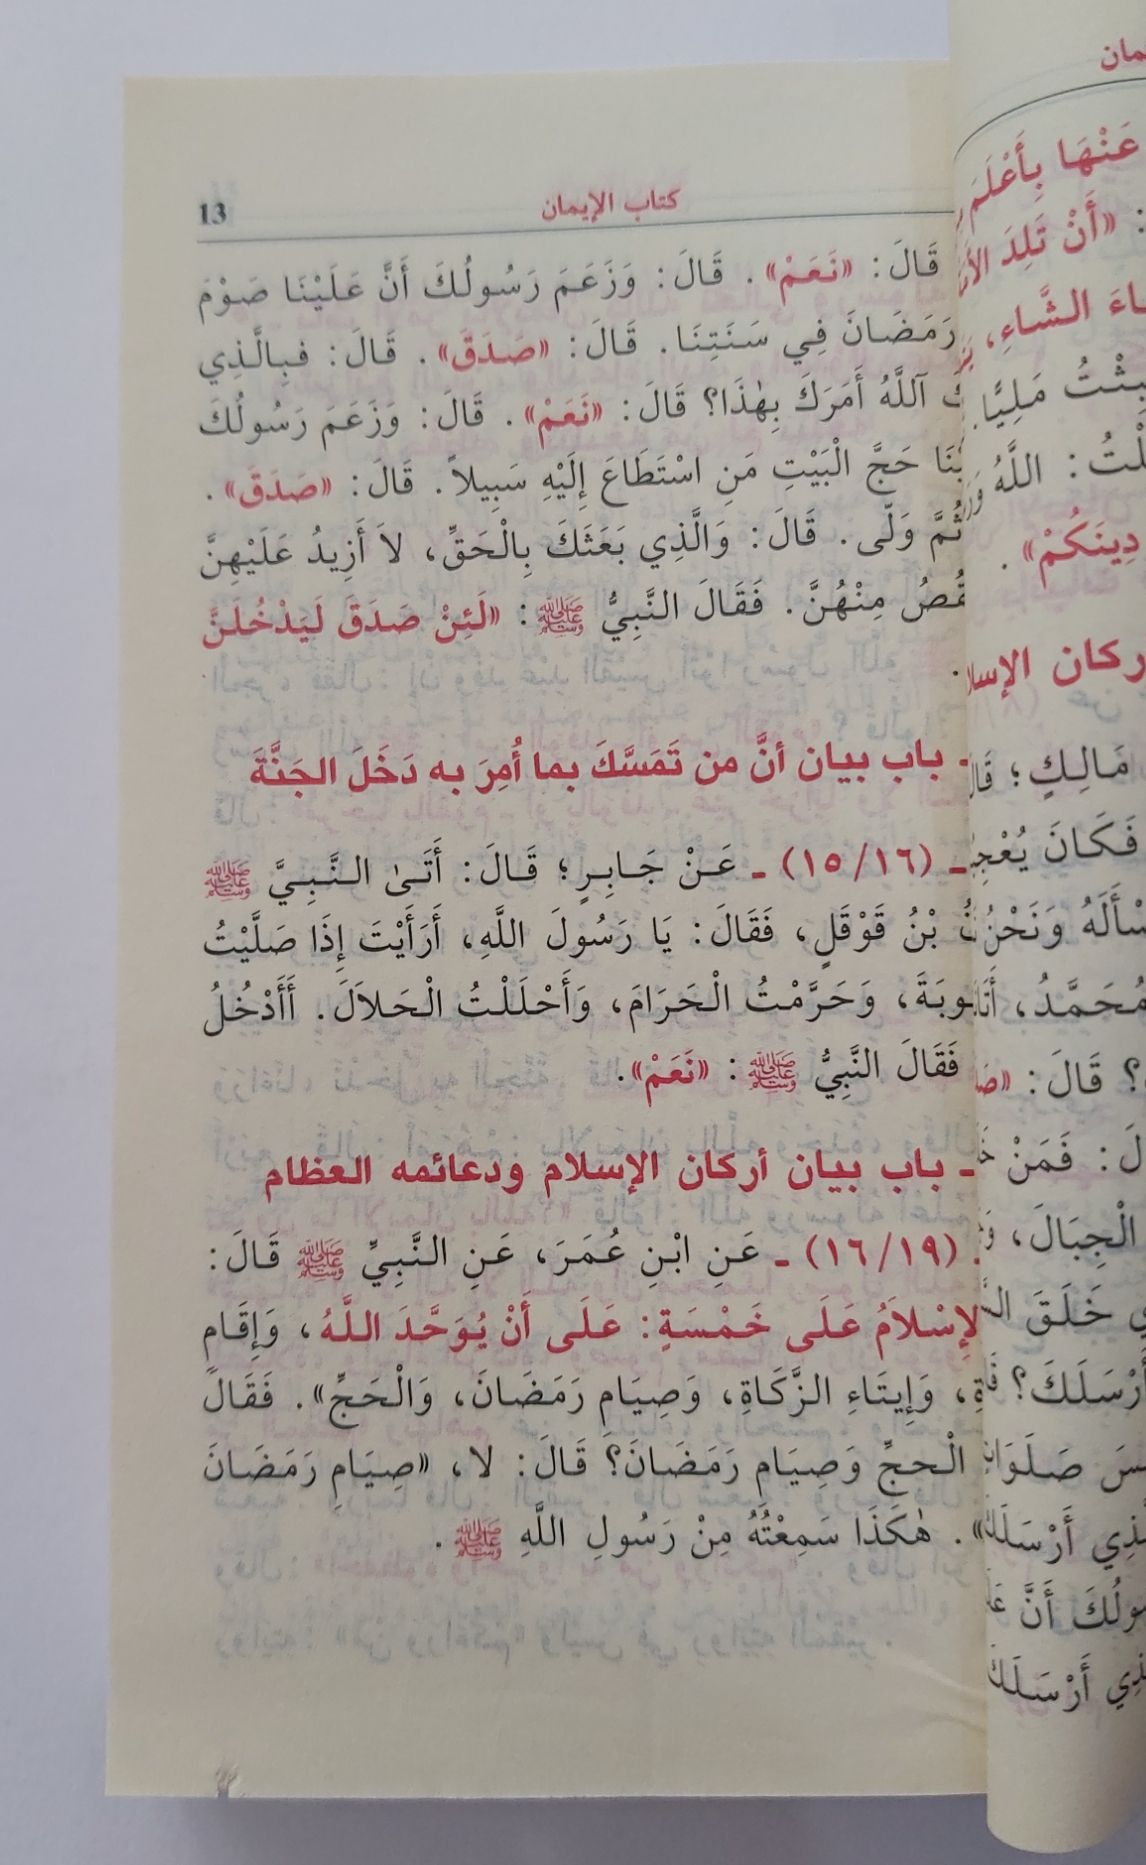 كتاب الإيمان
13
قَالَ: «نَعَمْ». قَالَ: وَزَعَمَ رَسُولُكَ أَنَّ عَلَيْنَا صَوْمَ
رَمَضَانَ فِي سَنَتِنَا. قَالَ: «صَدَقَ». قَالَ: فبِالَّذِي
آللَّهُ أَمَرَكَ بِهٰذَا؟ قَالَ: «نَعَمْ». قَالَ: وَزَعَمَ رَسُولُكَ
حَجَّ الْبَيْتِ مَنِ اسْتَطَاعَ إِلَيْهِ سَبِيلاً. قَالَ: «صَدَقَ».
ثُمَّ وَلّى. قَالَ: وَالَّذِي بَعَثَكَ بِالْحَقِّ، لاَ أَزِيدُ عَلَيْهِنَّ
مِنْهُنَّ. فَقَالَ النَّبِيُّ ﷺ: «لَئِنْ صَدَقَ لَيَدْخُلَنَّ
ـ باب بيان أنَّ من تَمَسَّكَ بما أُمِرَ به دَخَلَ الجَنَّةَ
ـ (١٥/١٦) ـ عَنْ جَابِرٍ؛ قَالَ: أَتَىٰ النَّبِيَّ ﷺ
بْنُ قَوْقَلٍ، فَقَالَ: يَا رَسُولَ اللَّهِ، أَرَأَيْتَ إِذَا صَلَّيْتُ
وَحَرَّمْتُ الْحَرَامَ، وَأَحْلَلْتُ الْحَلاَلَ. أَأَدْخُلُ
فَقَالَ النَّبِيُّ ﷺ: «نَعَمْ».
ـ باب بيان أركان الإسلام ودعائمه العظام
(١٦/١٩) ـ عَنِ ابْنِ عُمَرَ، عَنِ النَّبِيِّ ﷺ قَالَ:
الإِسْلاَمُ عَلَى خَمْسَةٍ: عَلَى أَنْ يُوَحَّدَ اللَّهُ، وَإِقَامِ
وَإِيتَاءِ الزَّكَاةِ، وَصِيَامِ رَمَضَانَ، وَالْحَجِّ». فَقَالَ
الْحجِّ وَصِيَامِ رَمَضَانَ؟ قَالَ: لا، «صِيَامِ رَمَضَانَ
». هٰكَذَا سَمِعْتُهُ مِنْ رَسُولِ اللَّهِ ﷺ.
عَنْهَا بِأَعْلَمَ
«أَنْ تَلِدَ
الشَّاءِ،
مَلِيًّا
اللَّهُ
دِينَكُمْ».
مَالِكٍ؛
فَكَانَ
وَنَحْنُ
مُحَمَّدُ،
؟ قَالَ:
فَمَنْ
الْجِبَالَ،
خَلَقَ
أَرْسَلَكَ؟
أَنَّ